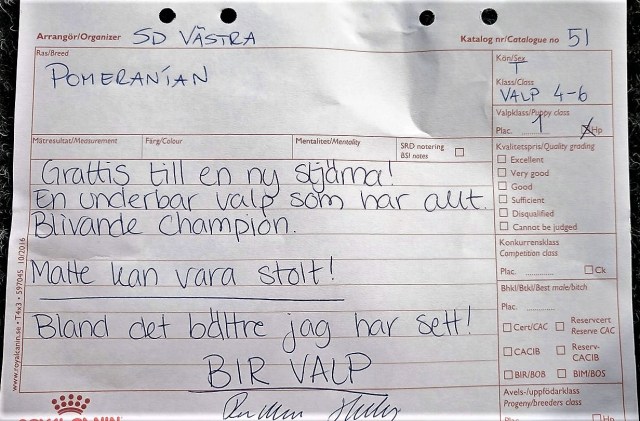 Arrangör/Organizer SD VÄSTRA Katalog nr/Catalogue no 51
Ras/Breed
POMERANIAN
Kön/Sex
T
Klass/Class
VALP 4-6
Valpklass/Puppy class
Plac. 1 Hp
Mätresultat/Measurement Färg/Colour Mentalitet/Mentality SRD notering
BSI notes
Kvalitetspris/Quality grading
Excellent
Very good
Good
Sufficient
Disqualified
Cannot be judged
Grattis till en ny stjärna!
En underbar valp som har allt.
Blivande Champion.
Matte kan vara stolt!
Bland det bättre jag har sett!
BIR VALP
Konkurrensklass
Competition class
Plac. ............ Ck
Bhkl/Btkl/Best male/bitch
Plac. ............
Cert/CAC Reservcert
Reserve CAC
CACIB Reserv-
CACIB
BIR/BOB BIM/BOS
Avels-/uppfödarklass
Progeny/breeders class
Hp
www.royalcanin.se • T4x3 • 597045 10/2016
ROYAL CANIN